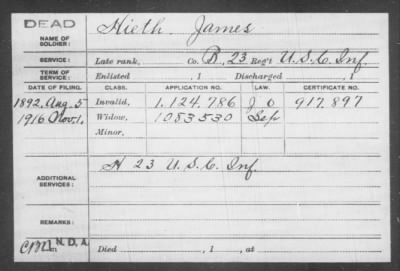 DEAD
NAME OF SOLDIER: Hieth James
SERVICE: Late rank, Co. B, 23 Reg't U.S.C. Inf.
TERM OF SERVICE: Enlisted , 1 Discharged , 1
DATE OF FILING. CLASS. APPLICATION NO. LAW. CERTIFICATE NO.
1892, Aug. 5 Invalid, 1.124.786 J O 917.897
1916 Nov. 1. Widow, 1083530 Sep
Minor,
ADDITIONAL SERVICES: H 23 U.S.C. Inf.
REMARKS:
N.D.A. Died , 1 , at